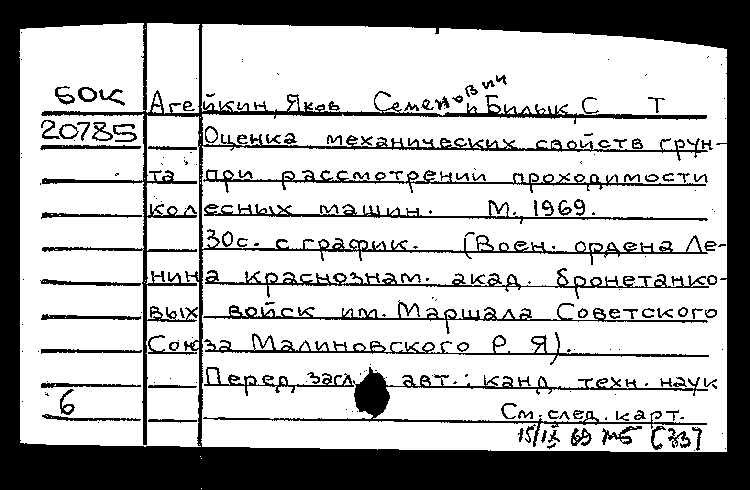 БОК Агейкин, Яков Семенович и Билык, С Т
20785 Оценка механических свойств грун-
та при рассмотрении проходимости
колесных машин. М., 1969.
30с. с график. (Воен. ордена Ле-
нина краснознам. акад. бронетанко-
вых войск им. Маршала Советского
Союза Малиновского Р. Я).
Перед загл. авт.: канд техн. наук
6 См. след. карт.
15/IX 69 [33]